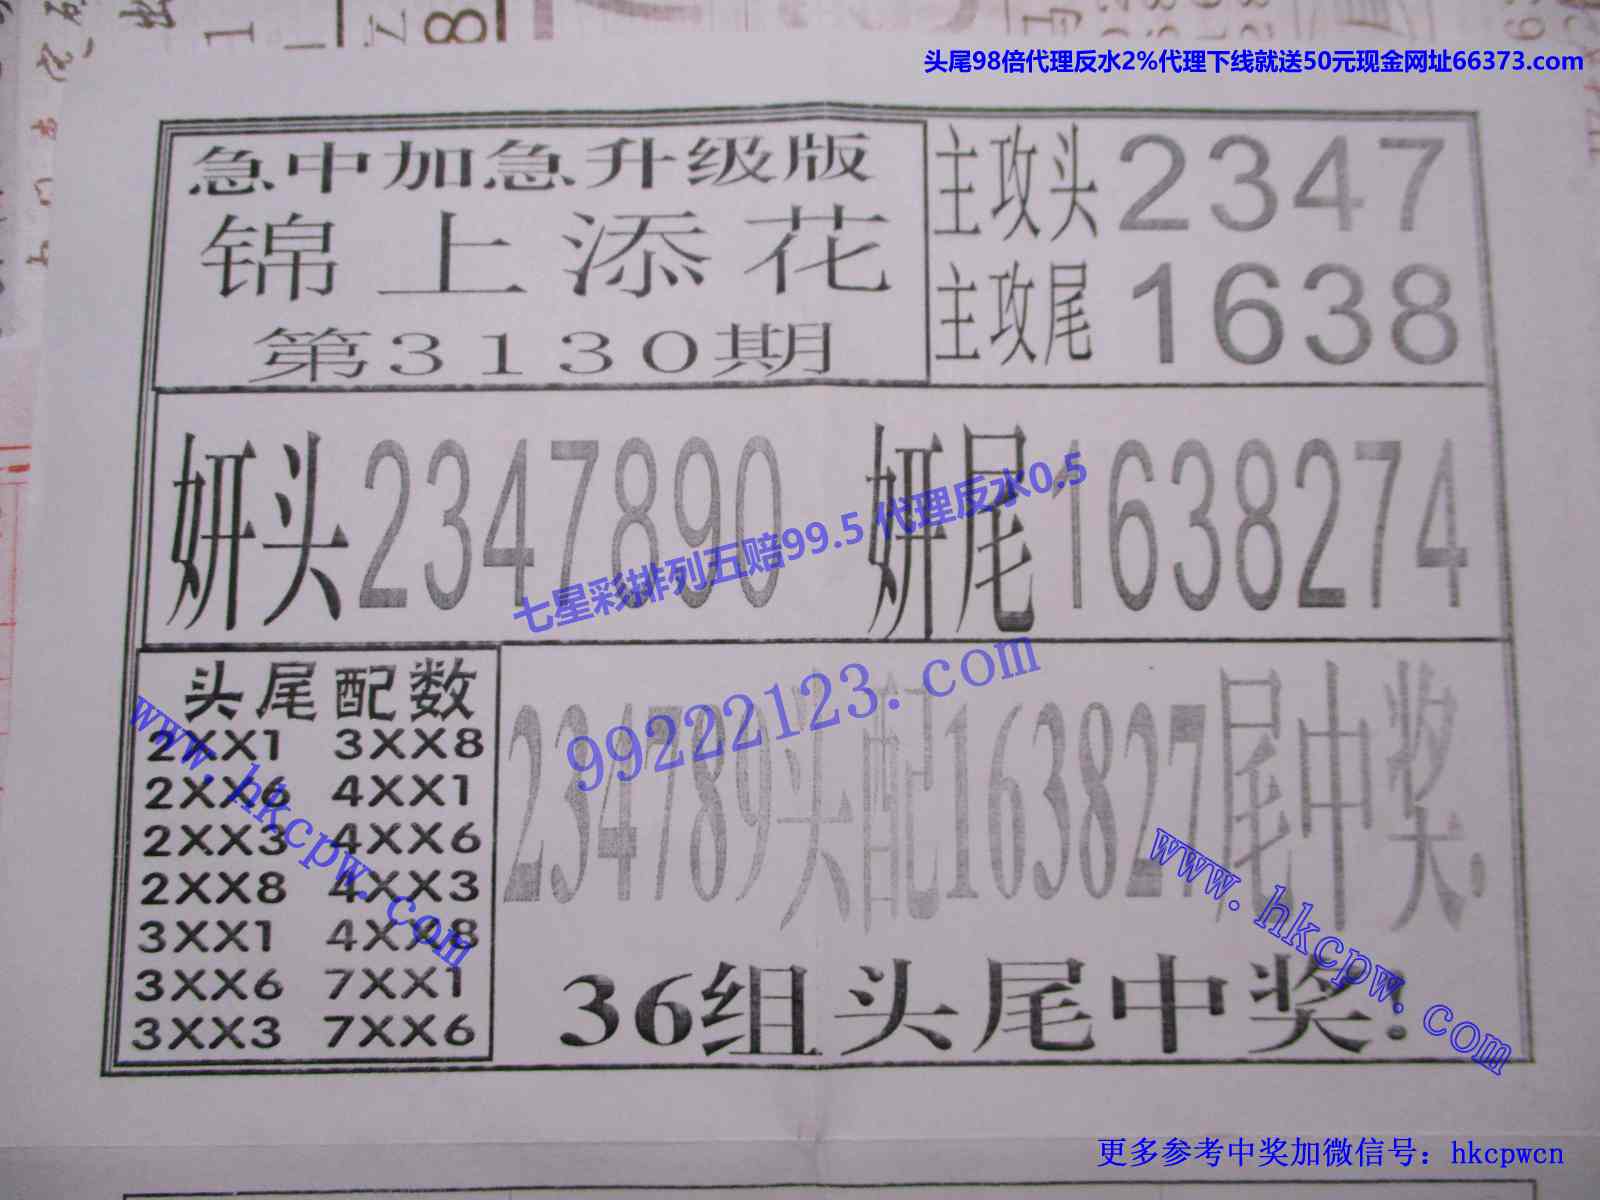 头尾98倍代理反水2%代理下线就送50元现金网址66373.com
急中加急升级版
锦上添花
第3130期
主攻头2347
主攻尾1638
妍头2347890
妍尾1638274
七星彩排列五赔99.5 代理反水0.5
99222123.com
头尾配数
2XX1 3XX8
2XX6 4XX1
2XX3 4XX6
2XX8 4XX3
3XX1 4XX8
3XX6 7XX1
3XX3 7XX6
www.hkcpw.com
234789头配163827尾中奖,
36组头尾中奖!
www.hkcpw.com
更多参考中奖加微信号：hkcpwcn